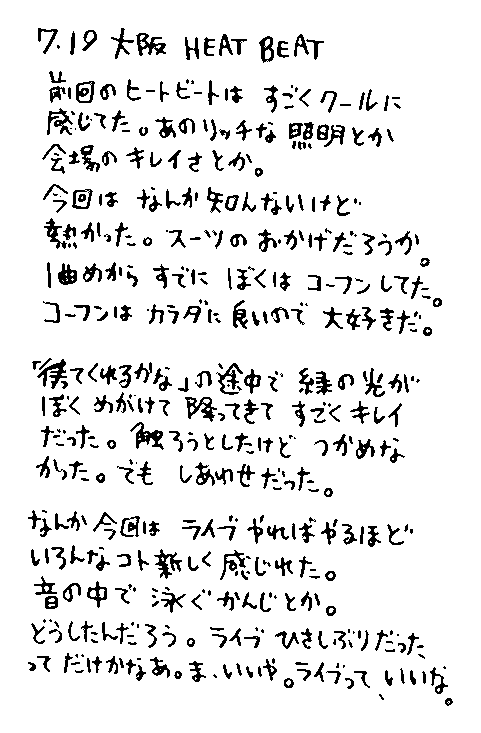 7.19 大阪 HEAT BEAT
前回のヒートビートは すごくクールに
感じてた。あのリッチな 照明とか
会場の キレイさとか。
今回は なんか知んないけど
熱かった。スーツの おかげだろうか。
1曲めから すでに ぼくは コーフンしてた。
コーフンは カラダに 良いので 大好きだ。
「待てくれるかな」の途中で 緑の光が
ぼく めがけて 降ってきて すごく キレイ
だった。触ろうとしたけど つかめな
かった。でも しあわせだった。
なんか 今回は ライブ やればやるほど
いろんなコト 新しく 感じれた。
音の中で 泳ぐ かんじとか。
どうしたんだろう。ライブ ひさしぶりだった、
って だけかなあ。ま、いいや。ライブって、いいな。